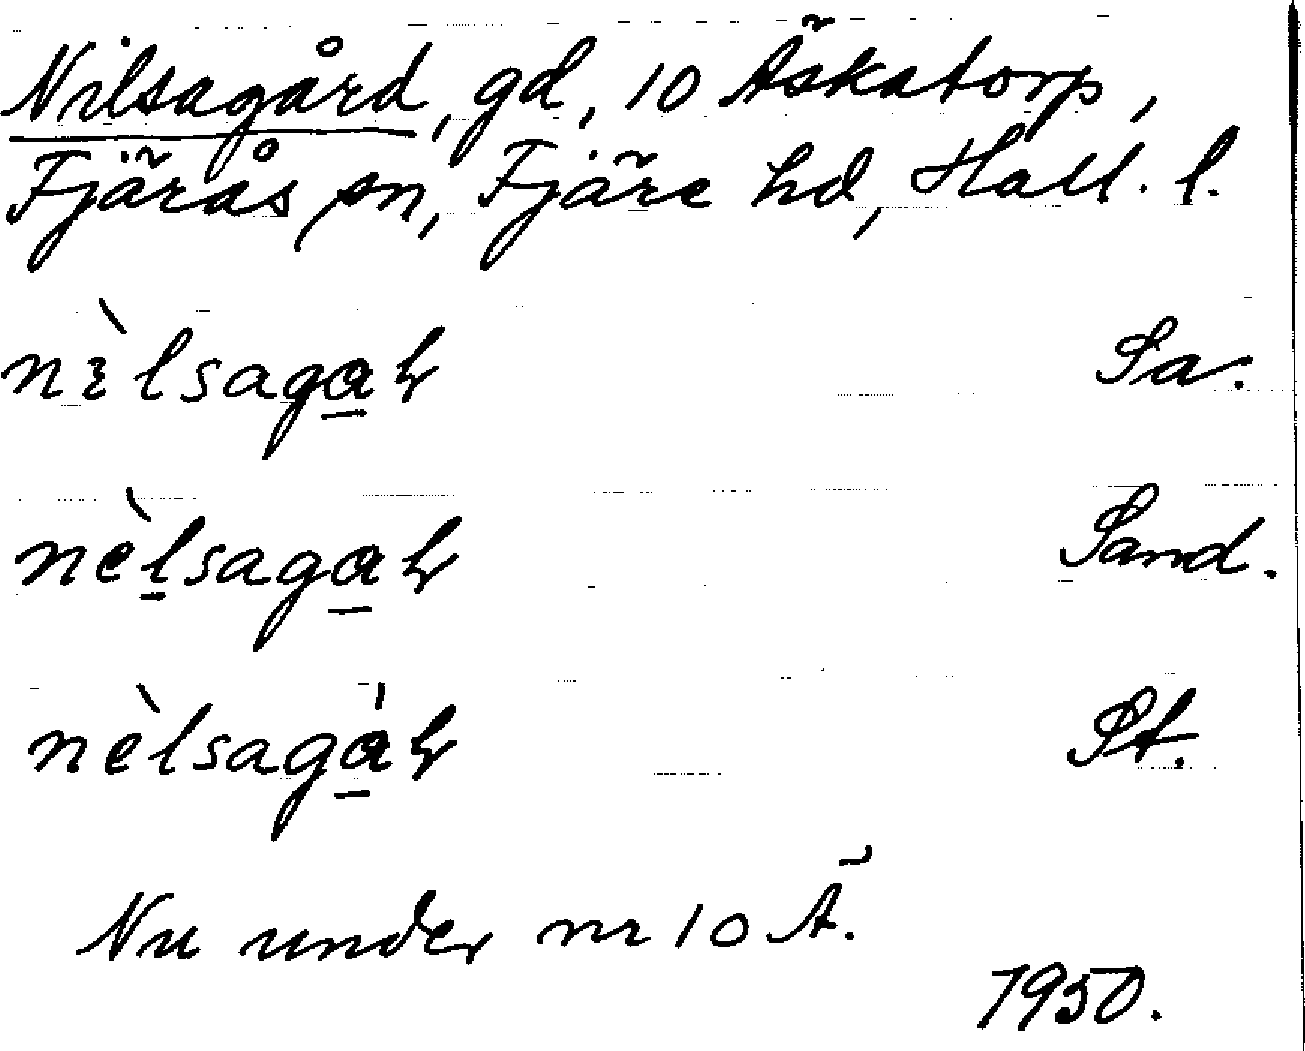 Nilsagård, gd, 10 Äskatorp,
Fjärås sn, Fjäre hd, Hall. l.
Sa.
nèlsagar
Sand.
nèlsagàr
St.
Nu under nr 10 Ä.
1950.